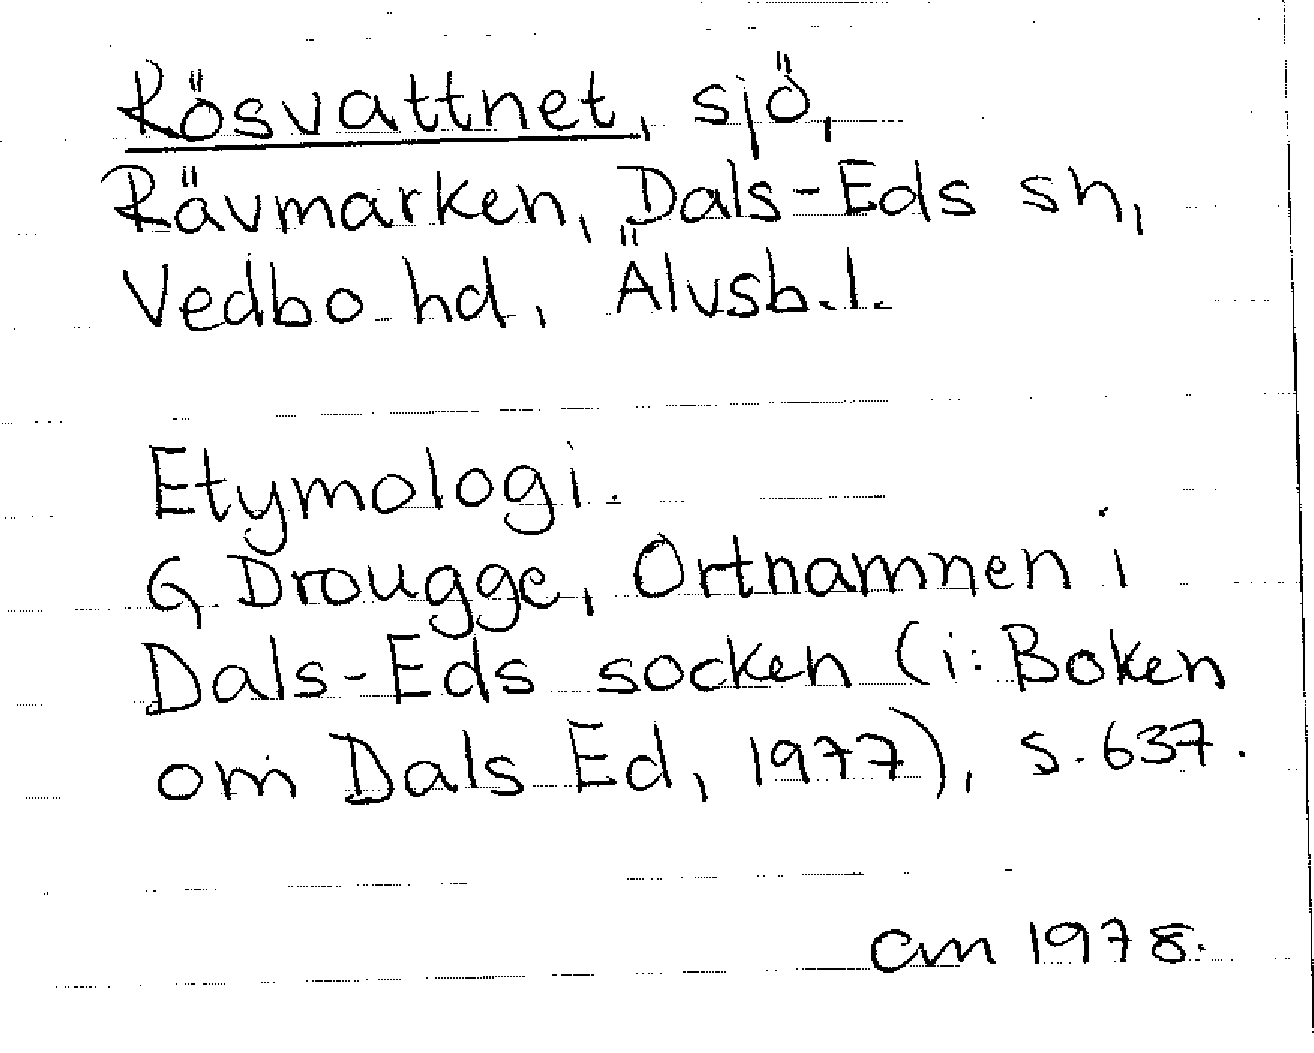 Rösvattnet, sjö,
Rävmarken, Dals-Eds sn,
Vedbo hd, Älvsb.l.
Etymologi.
G Drougge, Ortnamnen i
Dals-Eds socken (i: Boken
om Dals Ed, 1977), s. 637.
am 1978.